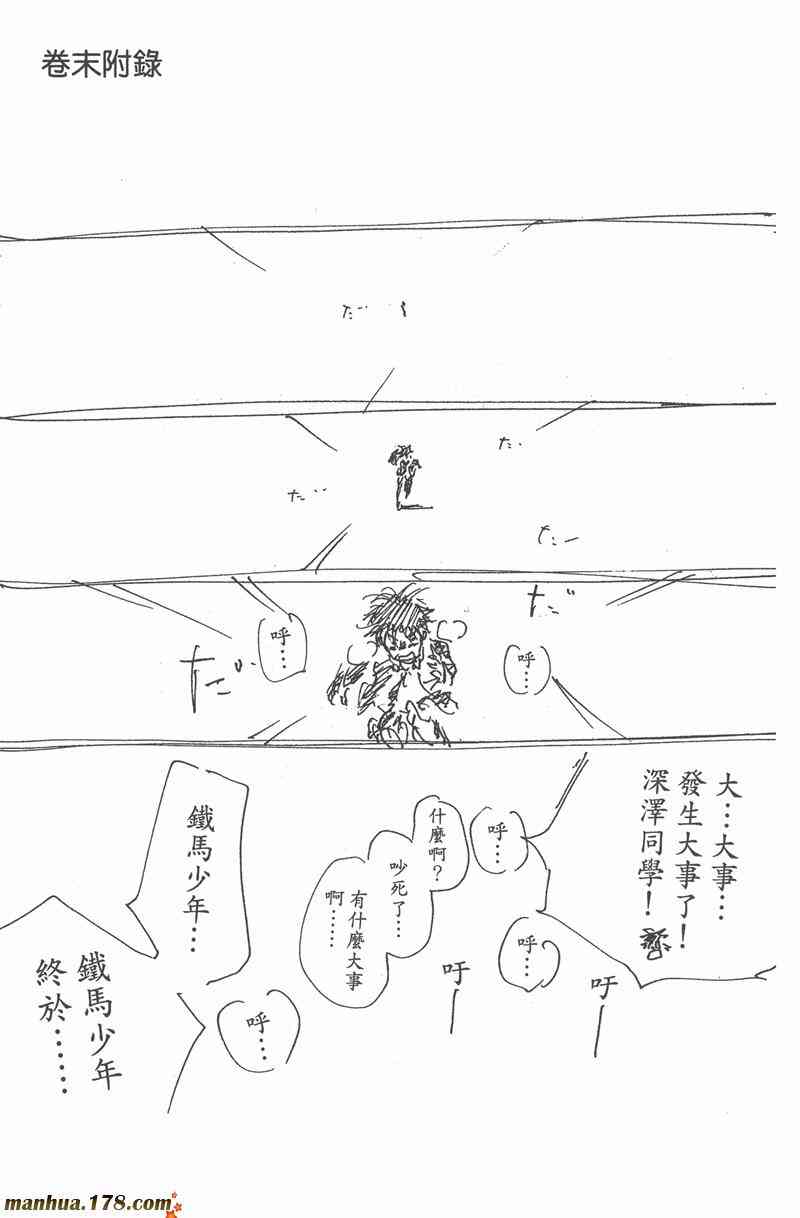 卷末附錄
だ..
た..
だ..
たー
だ..
呼…
呼…
だ..
大…大事…
發生大事了！
深澤同學！
呼…
什麼啊？
吵死了…
有什麼大事
啊……
呼…
吁—
吁—
鐵馬少年…
呼…
鐵馬少年
終於……
manhua.178.com